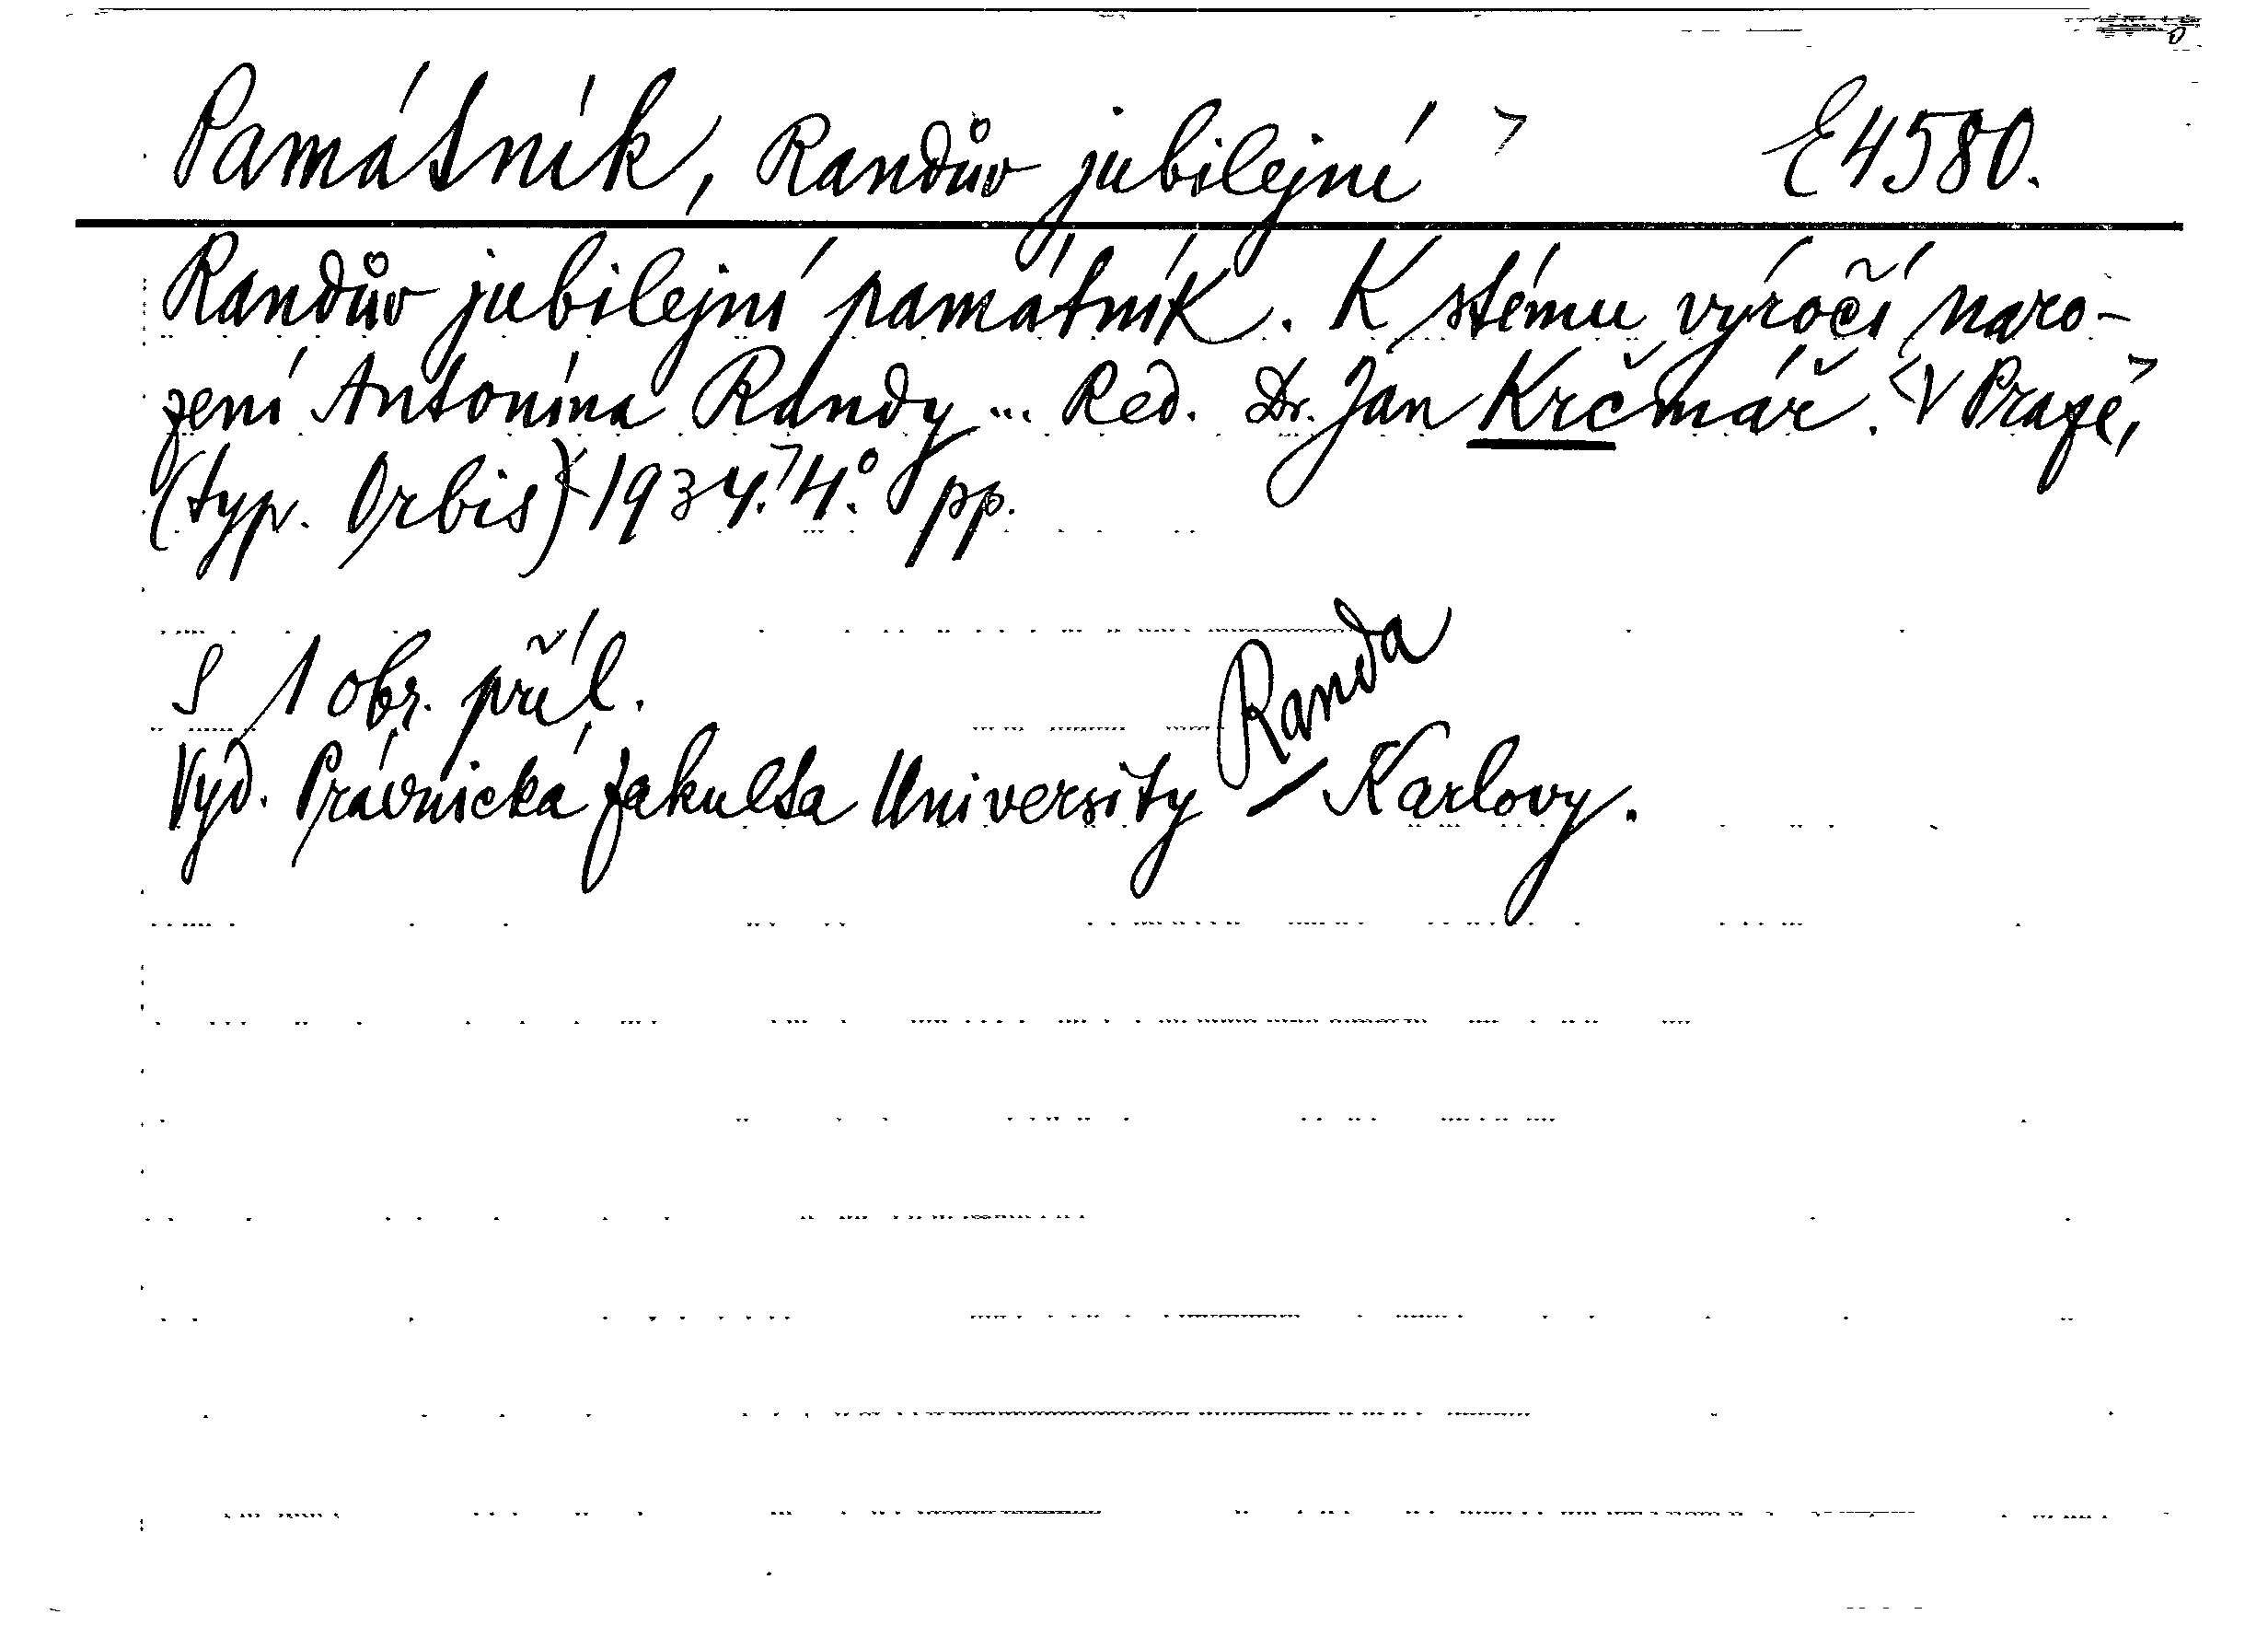 Památník, Randův jubilejní > E 4580.
Randův jubilejní památník. K stému výročí naro-
zení Antonína Randy ... Red. Dr. Jan Krčmář. <V Praze,>
(typ. Orbis) <1934.> 4.° pp.
S 1 obr. příl.
Randa
Vyd. Právnická fakulta University – Karlovy.